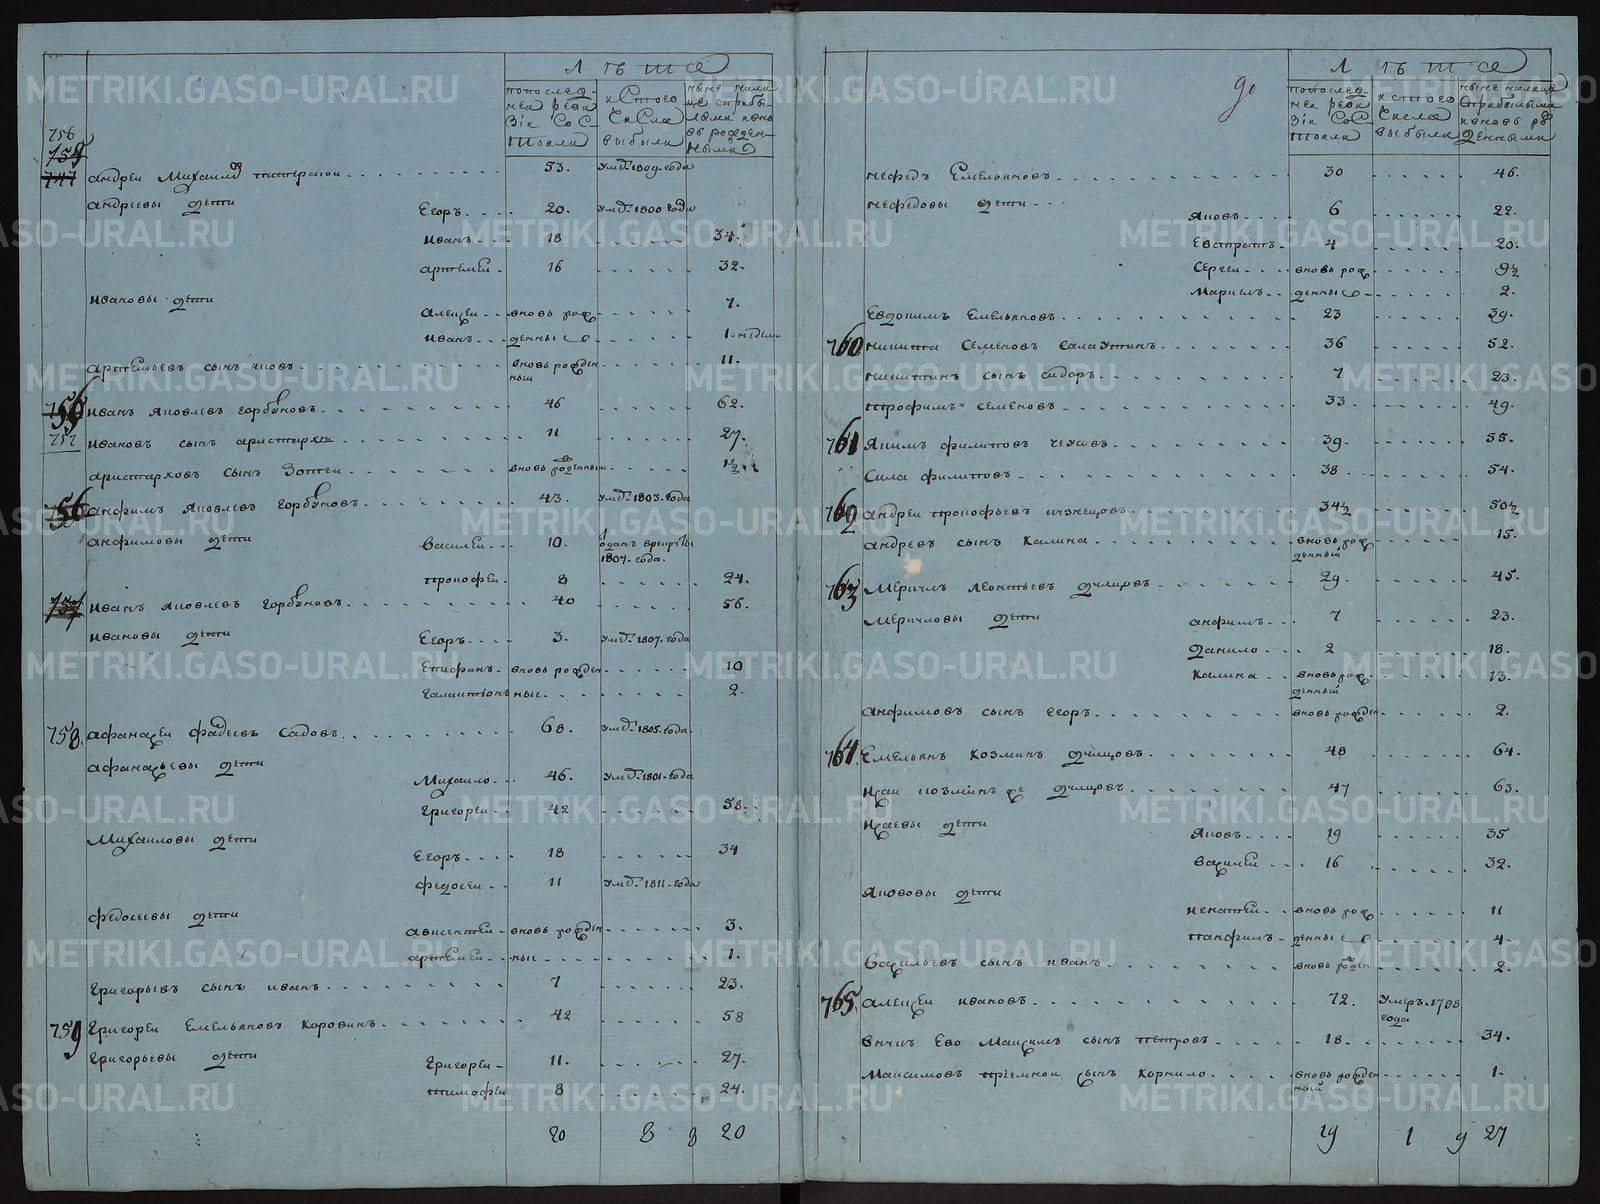 Лѣта
по последней ревизiи состояли
из того числа выбыли
ныне налице с прибылыми и вновь рожденными
756
754
747
андреи Михаилов 53. умд. 1809-года
андреевы дети
Егоръ 20. умд. 1800 года
иванъ 18 34.
артемеи 16 32.
ивановы дети
Алексеи вновь рож 7.
иванъ денные 1-недели
артемьевъ сынъ яковъ вновь рожденныи 11.
иванъ яковлевъ горбуновъ 46 62.
757
ивановъ сынъ аристархъ 11 27.
аристарховъ сынъ Зотеи вновь рожденныи 1½
756 анфимъ яковлевъ горбуновъ 43. умд. 1803-года
анфимовы дети
василеи 10. одан в рекруты
1807-года.
прокофеи 8 24.
757 иванъ яковлевъ горбуновъ 40 56.
ивановы дети
Егоръ 3. умд. 1807-года
Епифанъ вновь рожден 10
галактионъ ные 2.
758. афанасеи фадеевъ садовъ 68. умд. 1805-года.
афанасьевы дети
Михаило 46. умд. 1801-года
григореи 42 58.
Михаиловы дети
Егоръ 18 34
федосеи 11 умд. 1811-года
федосеевы дети
авксентеи вновь рожден 3.
артемеи ные 1.
григорьевъ сынъ иванъ 7 23.
759 григореи Емельяновъ коровинъ 42 58
григорьевы дети
григореи 11. 27.
тимофеи 8 24.
20 8 8 20
90
Лѣта
по последней ревизiи состояли
из того числа выбыли
ныне налице с прибылыми и вновь рожденными
нефедъ Емельяновъ 30 46.
нефедовы дети
яковъ 6 22.
Евстратъ 4 20.
Сергеи вновь рож 9½
Маркелъ денные 2.
Евдокимъ Емельяновъ 23 39.
760 никита Семеновъ Салаутинъ 36 52.
никитинъ сынъ сидоръ 7 23.
трофимъ семеновъ 33 49.
761 якимъ филиповъ чеусовъ 39. 55.
Сила филиповъ 38 54.
762 андреи прокофьевъ кузнецовъ 34½ 50½
андреевъ сынъ Калина вновь рожденныи 15.
763 Меркулъ леонтьевъ 29. 45.
Меркуловы дети
анфимъ 7 23.
данило 2 18.
калина вновь рожденныи 13.
анфимовъ сынъ Егоръ вновь рожден 2.
764 Емельянъ козминъ 48 64.
исаи козминъ же 47 63.
исаевы дети
яковъ 19 35
василеи 16 32.
якововы дети
игнатеи вновь рож 11
панфилъ денные 4.
васильевъ сынъ иванъ вновь рожден 2.
765. алексеи ивановъ 72. Умеръ. 1798
года
внукъ Ево Максимъ сынъ петровъ 18. 34.
Максимовъ приемнои сынъ корнило вновь рожденныи 1.
29 1 9 27